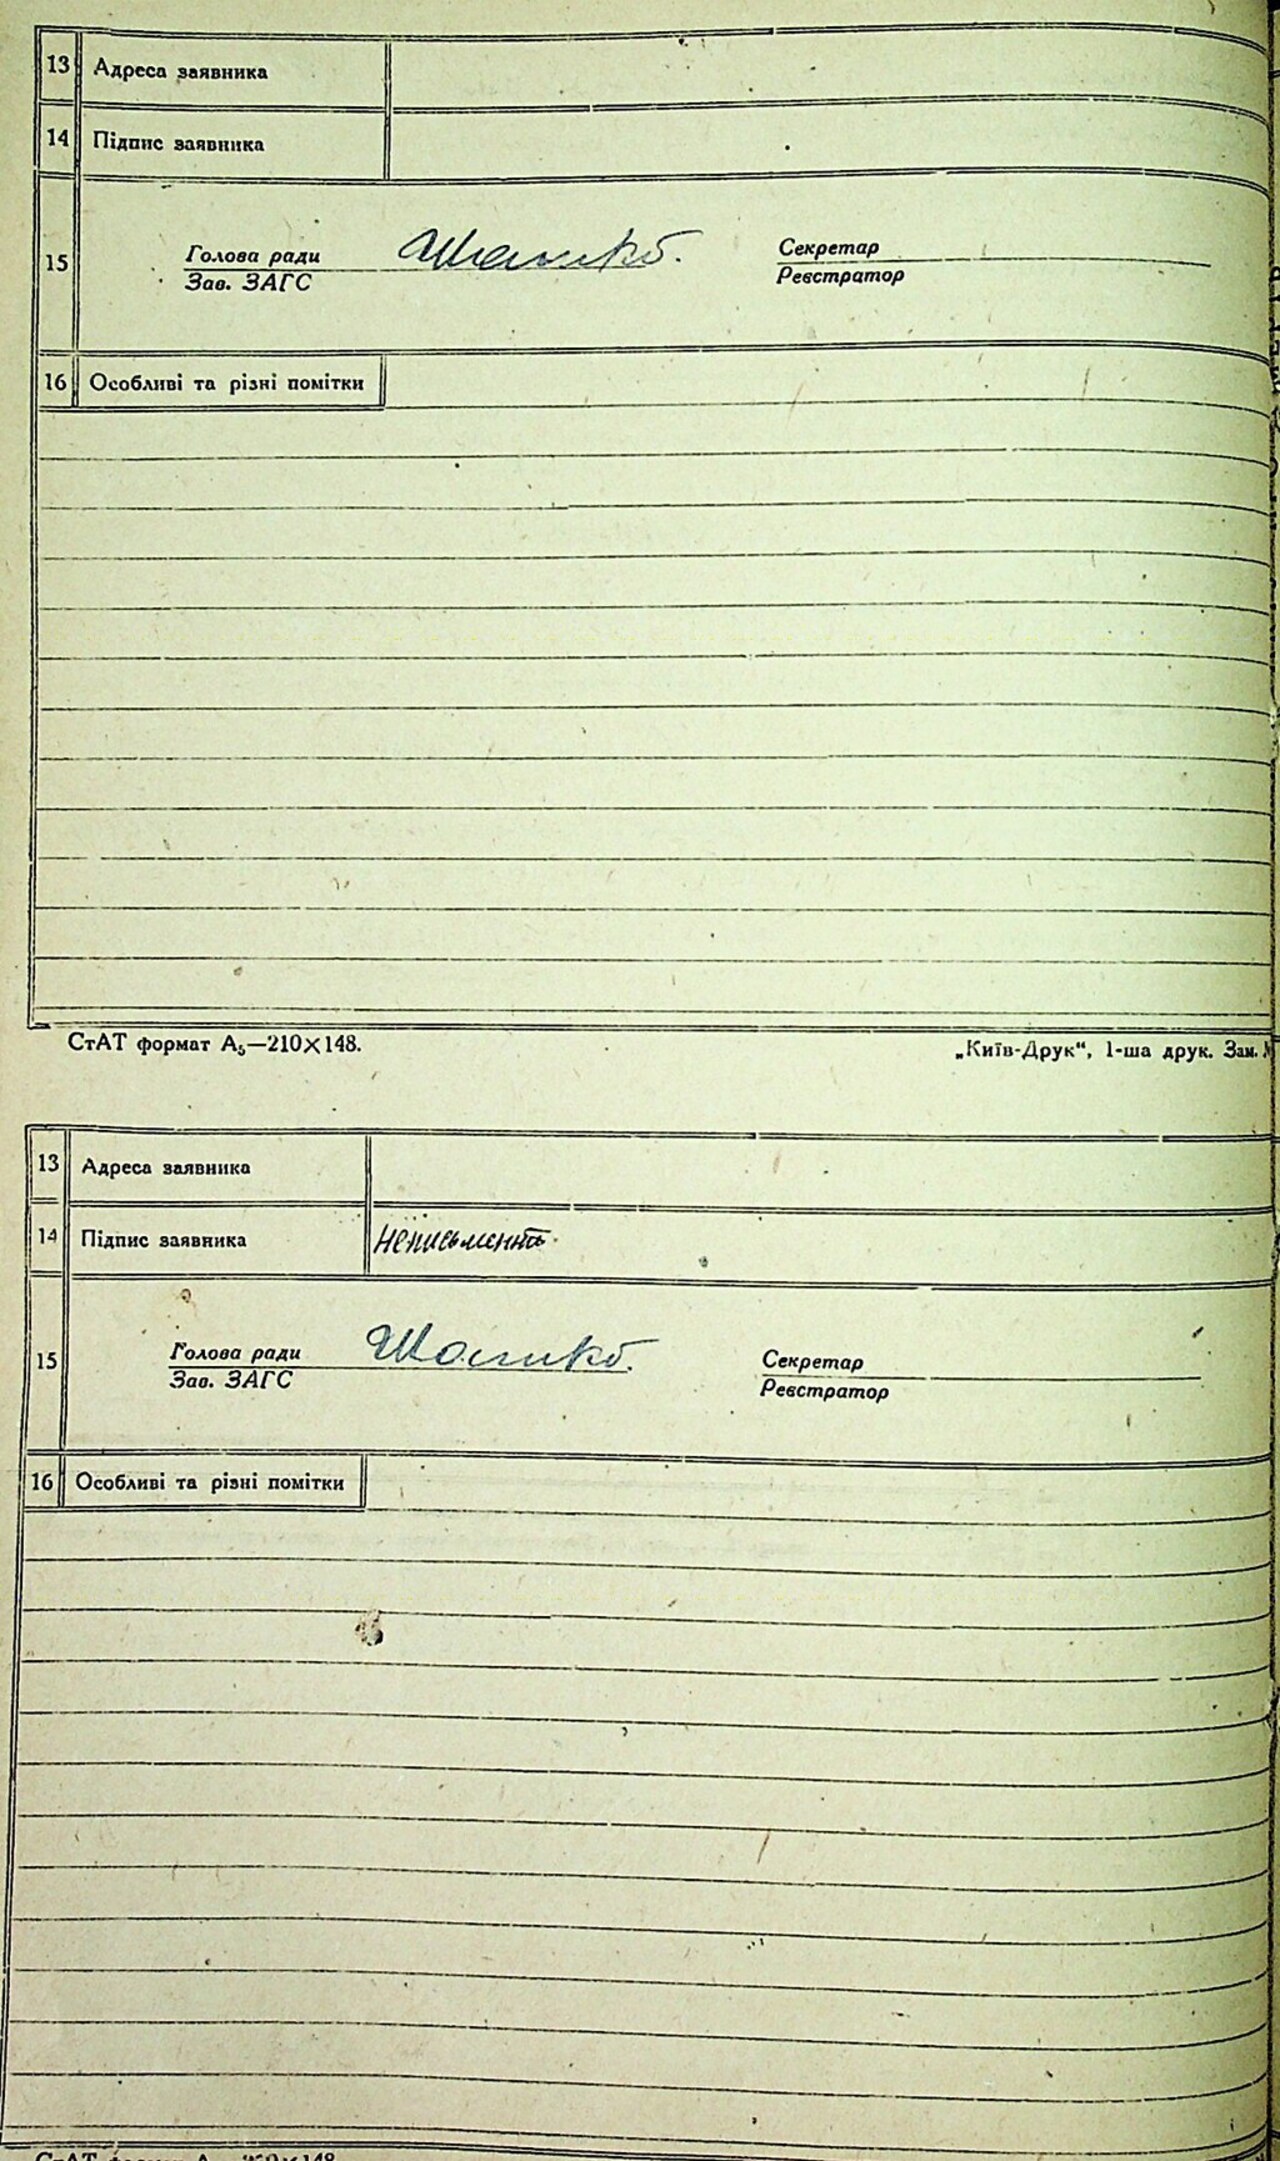 13 Адреса заявника
14 Підпис заявника
15
Голова ради
Зав. ЗАГС
Секретар
Реєстратор
16 Особливі та різні помітки
СтАТ формат А₅—210×148.
„Київ-Друк“, 1-ша друк. Зам.
13 Адреса заявника
14 Підпис заявника неписьменна.
15
Голова ради
Зав. ЗАГС
Секретар
Реєстратор
16 Особливі та різні помітки